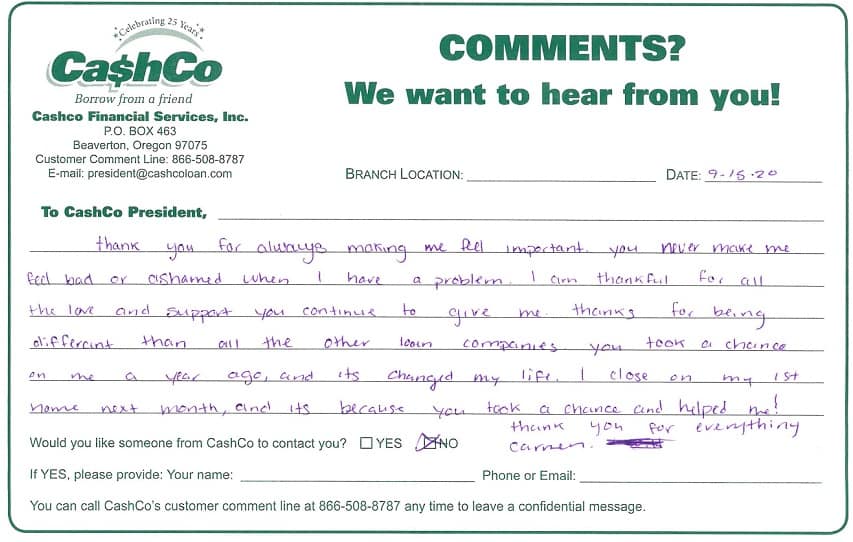 Celebrating 25 Years
Ca$hCo
Borrow from a friend
Cashco Financial Services, Inc.
P.O. BOX 463
Beaverton, Oregon 97075
Customer Comment Line: 866-508-8787
E-mail: president@cashcoloan.com
COMMENTS?
We want to hear from you!
BRANCH LOCATION:
DATE: 9-15-20
To CashCo President,
thank you for always making me feel important. you never make me
feel bad or ashamed when I have a problem. I am thankful for all
the love and support you continue to give me. thanks for being
differcint than all the other loan companies. you took a chance
on me a year ago, and its changed my life. I close on my 1st
home next month, and its because you took a chance and helped me!
thank you for everything
Carmen.
Would you like someone from CashCo to contact you? YES NO
If YES, please provide: Your name: Phone or Email:
You can call CashCo's customer comment line at 866-508-8787 any time to leave a confidential message.